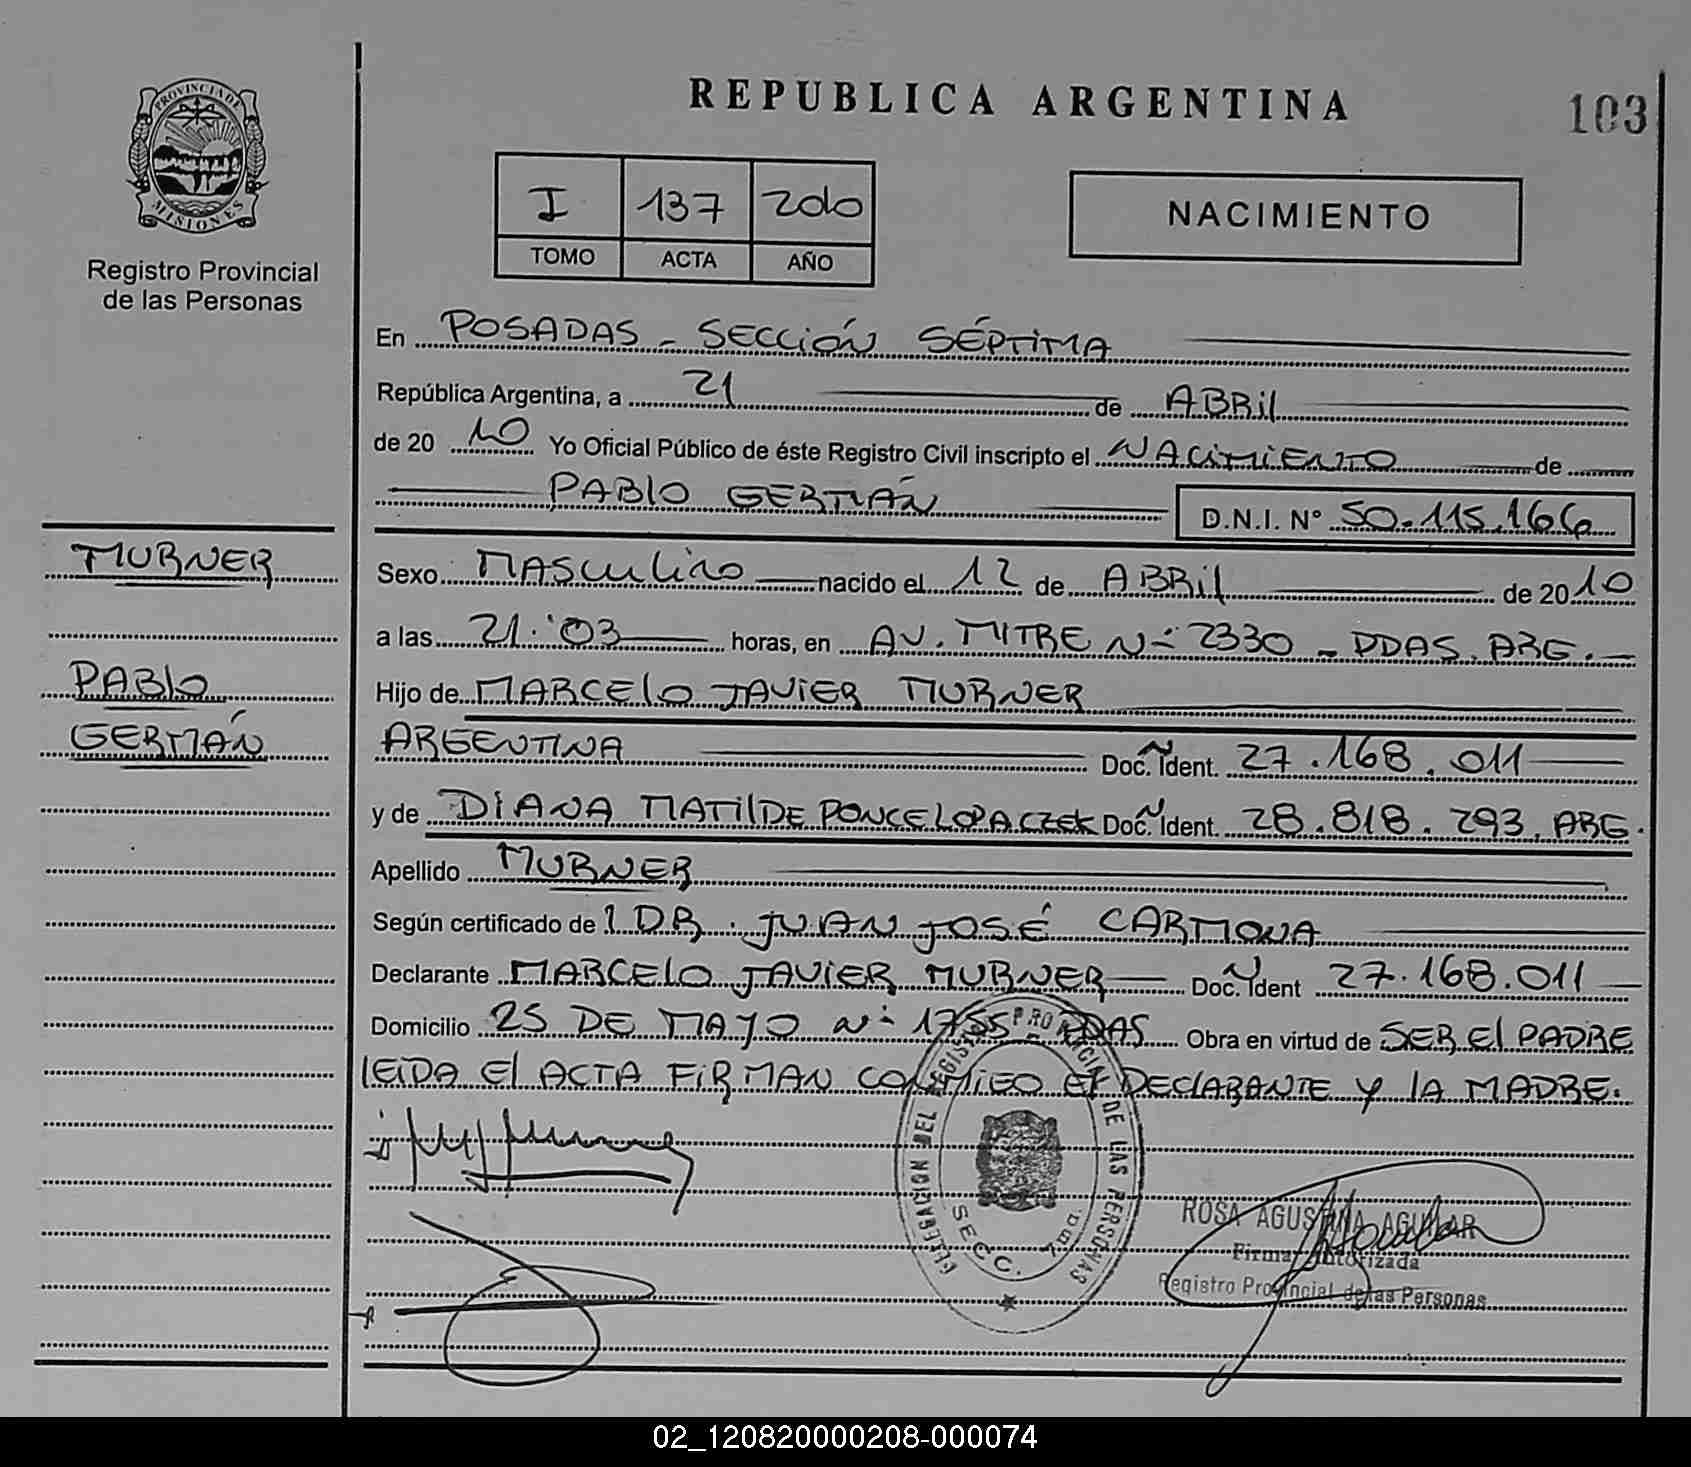 PROVINCIA DE
MISIONES
Registro Provincial
de las Personas
REPUBLICA ARGENTINA
103
I 137 2010
TOMO ACTA AÑO
NACIMIENTO
En POSADAS - SECCIÓN SÉPTIMA
República Argentina, a 21 de ABRIL
de 20 10 Yo Oficial Público de éste Registro Civil inscripto el NACIMIENTO de
PABLO GERMÁN D.N.I. N° 50.115.166
MURNER
Sexo MASCULINO nacido el 12 de ABRIL de 20 10
a las 21:03 horas, en AV. MITRE Nº 2330 - PDAS. ARG.
PABLO
Hijo de MARCELO JAVIER MURNER
GERMÁN
ARGENTINA Doc. Ident. 27.168.011
y de DIANA MATILDE PONCELOPACZEK Doc. Ident. 28.818.293. ARG.
Apellido MURNER
Según certificado de l DR. JUAN JOSÉ CARMONA
Declarante MARCELO JAVIER MURNER Doc. Ident 27.168.011
Domicilio 25 DE MAYO Nº 1755 - PDAS Obra en virtud de SER EL PADRE
LEIDA EL ACTA FIRMAN CONMIGO EL DECLARANTE Y LA MADRE.
DELEGACION DEL REGISTRO PROVINCIAL DE LAS PERSONAS
SECC. 7ma.
ROSA AGUSTINA AGUILAR
Firma Autorizada
Registro Provincial de las Personas
02_120820000208-000074